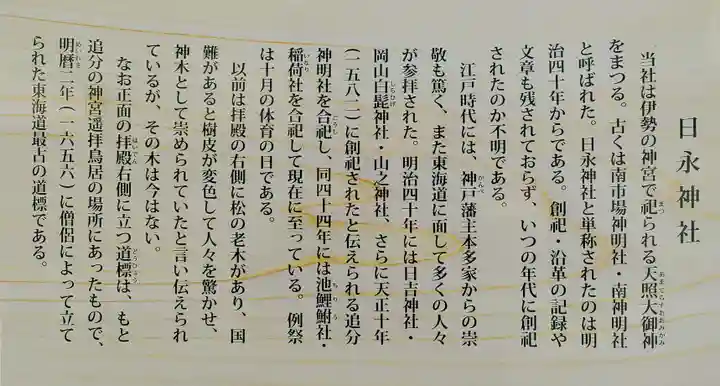 日永神社
当社は伊勢の神宮で祀られる天照大御神
をまつる。古くは南市場神明社・南神明社
と呼ばれた。日永神社と単称されたのは明
治四十年からである。創祀・沿革の記録や
文章も残されておらず、いつの年代に創祀
されたのか不明である。
江戸時代には、神戸藩主本多家からの崇
敬も篤く、また東海道に面して多くの人々
が参拝された。明治四十年には日吉神社・
岡山白髭神社・山之神社、さらに天正十年
（一五八二）に創祀されたと伝えられる追分
神明社を合祀し、同四十四年には池鯉鮒社・
稲荷社を合祀して現在に至っている。例祭
は十月の体育の日である。
以前は拝殿の右側に松の老木があり、国
難があると樹皮が変色して人々を驚かせ、
神木として崇められていたと言い伝えられ
ているが、その木は今はない。
なお正面の拝殿右側に立つ道標は、もと
追分の神宮遥拝鳥居の場所にあったもので、
明暦二年（一六五六）に僧侶によって立て
られた東海道最古の道標である。